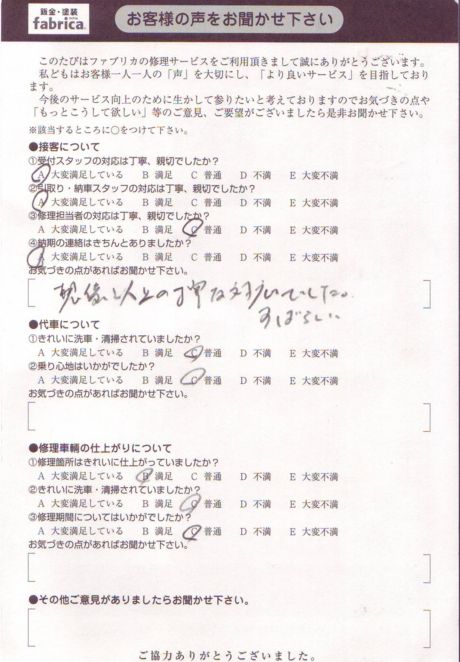 鈑金・塗装
fabrica.
お客様の声をお聞かせ下さい
このたびはファブリカの修理サービスをご利用頂きまして誠にありがとうございます。
私どもはお客様一人一人の「声」を大切にし、「より良いサービス」を目指しており
ます。
今後のサービス向上のために生かして参りたいと考えておりますのでお気づきの点や
「もっとこうして欲しい」等のご意見、ご要望がございましたら是非お聞かせ下さい。
※該当するところに○をつけて下さい。
●接客について
①受付スタッフの対応は丁寧、親切でしたか？
A 大変満足している B 満足 C 普通 D 不満 E 大変不満
②引取り・納車スタッフの対応は丁寧、親切でしたか？
A 大変満足している B 満足 C 普通 D 不満 E 大変不満
③修理担当者の対応は丁寧、親切でしたか？
A 大変満足している B 満足 C 普通 D 不満 E 大変不満
④納期の連絡はきちんとありましたか？
A 大変満足している B 満足 C 普通 D 不満 E 大変不満
お気づきの点があればお聞かせ下さい。
想像以上の丁寧な対応でした。
すばらしい
●代車について
①きれいに洗車・清掃されていましたか？
A 大変満足している B 満足 C 普通 D 不満 E 大変不満
②乗り心地はいかがでしたか？
A 大変満足している B 満足 C 普通 D 不満 E 大変不満
お気づきの点があればお聞かせ下さい。
●修理車輌の仕上がりについて
①修理箇所はきれいに仕上がっていましたか？
A 大変満足している B 満足 C 普通 D 不満 E 大変不満
②きれいに洗車・清掃されていましたか？
A 大変満足している B 満足 C 普通 D 不満 E 大変不満
③修理期間についてはいかがでしたか？
A 大変満足している B 満足 C 普通 D 不満 E 大変不満
お気づきの点があればお聞かせ下さい。
●その他ご意見がありましたらお聞かせ下さい。
ご協力ありがとうございました。